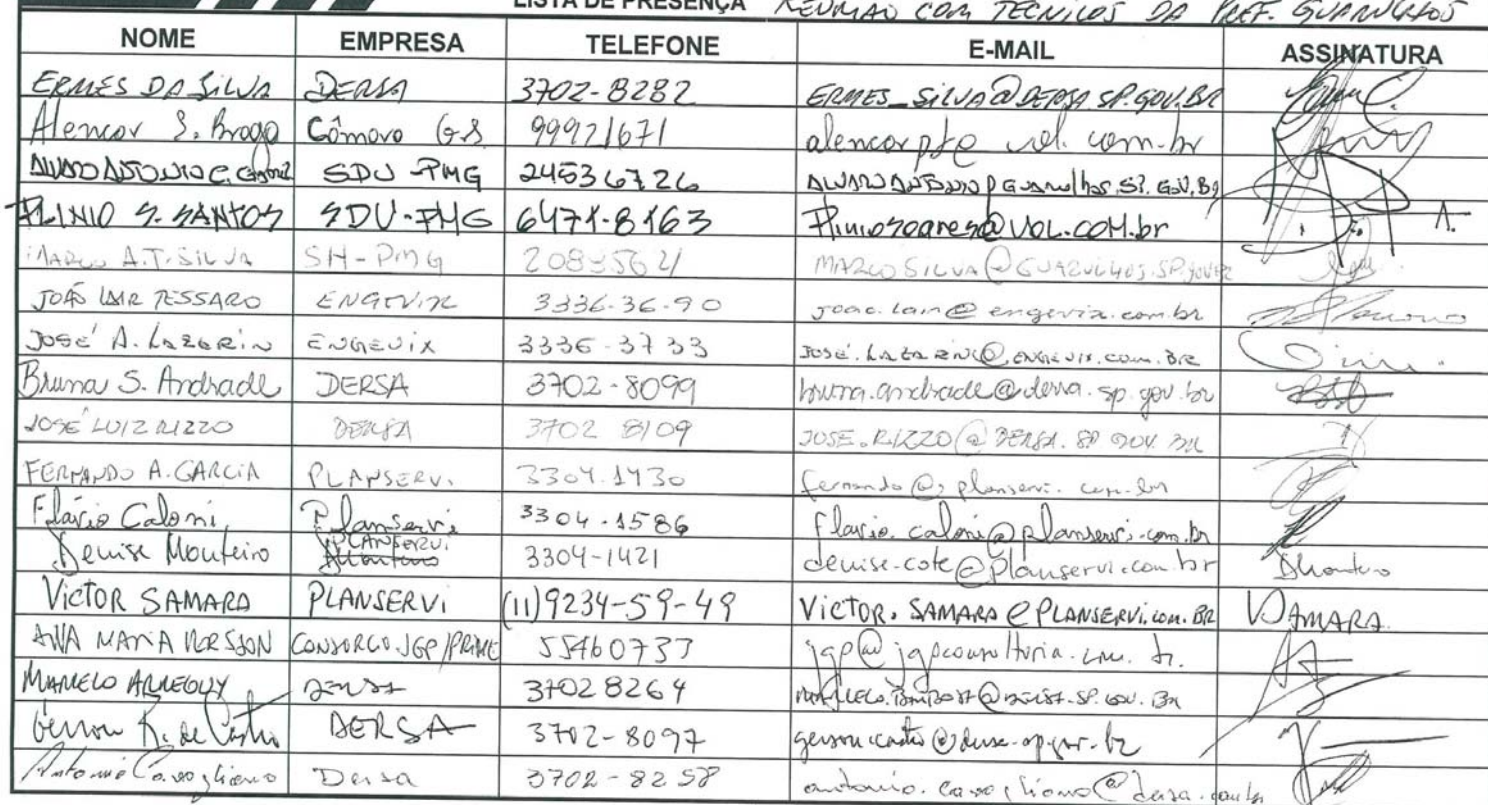 LISTA DE PRESENÇA REUNIÃO COM TÉCNICOS DA PREF. GUARULHOS
NOME EMPRESA TELEFONE E-MAIL ASSINATURA
ERMES DA SILVA DERSA 3702-8282 ERMES_SILVA@DERSA SP.GOV.BR
Alencar S. Braga Câmara G.S. 99921671 alencarpt@uol.com.br
SDU-PMG 24536726
PLINIO S. SANTOS SDU-PMG 6471-8163 Pliniosoares@UOL.COM.br
MARCO A.T. SILVA SH-PMG MARCO SILVA@GUARULHOS.SP.GOV.BR
JOÃO LAIR TESSARO ENGEVIX 3336-36-90 joao.lair@engevix.com.br
JOSÉ A. LAZARIN ENGEVIX 3336-3733 JOSÉ.LAZARIN@ENGEVIX.COM.BR
Bruna S. Andrade DERSA 3702-8099 bruna.andrade@dersa.sp.gov.br
JOSÉ LUIZ RIZZO DERSA 3702 8109 JOSE.RIZZO@DERSA.SP GOV.BR
FERNANDO A. GARCIA PLANSERVI 3304.1430 fernando@planservi.com.br
Flávio Caloni Planservi 3304.1586 flavio.caloni@planservi.com.br
Denise Monteiro PLANSERVI 3304-1421 denise-cote@planservi.com.br DMonteiro
VICTOR SAMARA PLANSERVI (11)9234-59-49 VICTOR.SAMARA@PLANSERVI.COM.BR VSAMARA
ANA MARIA CONSORCIO JGP/PRIME 55460733 jgp@jgpconsultoria.com.br.
MARCELO DERSA 37028264
Gerson R. de Castro DERSA 3702-8097 gerson.castro@dersa.sp.gov.br
Antonio Cavagliano Dersa 3702-8258 antonio.cavagliano@dersa.